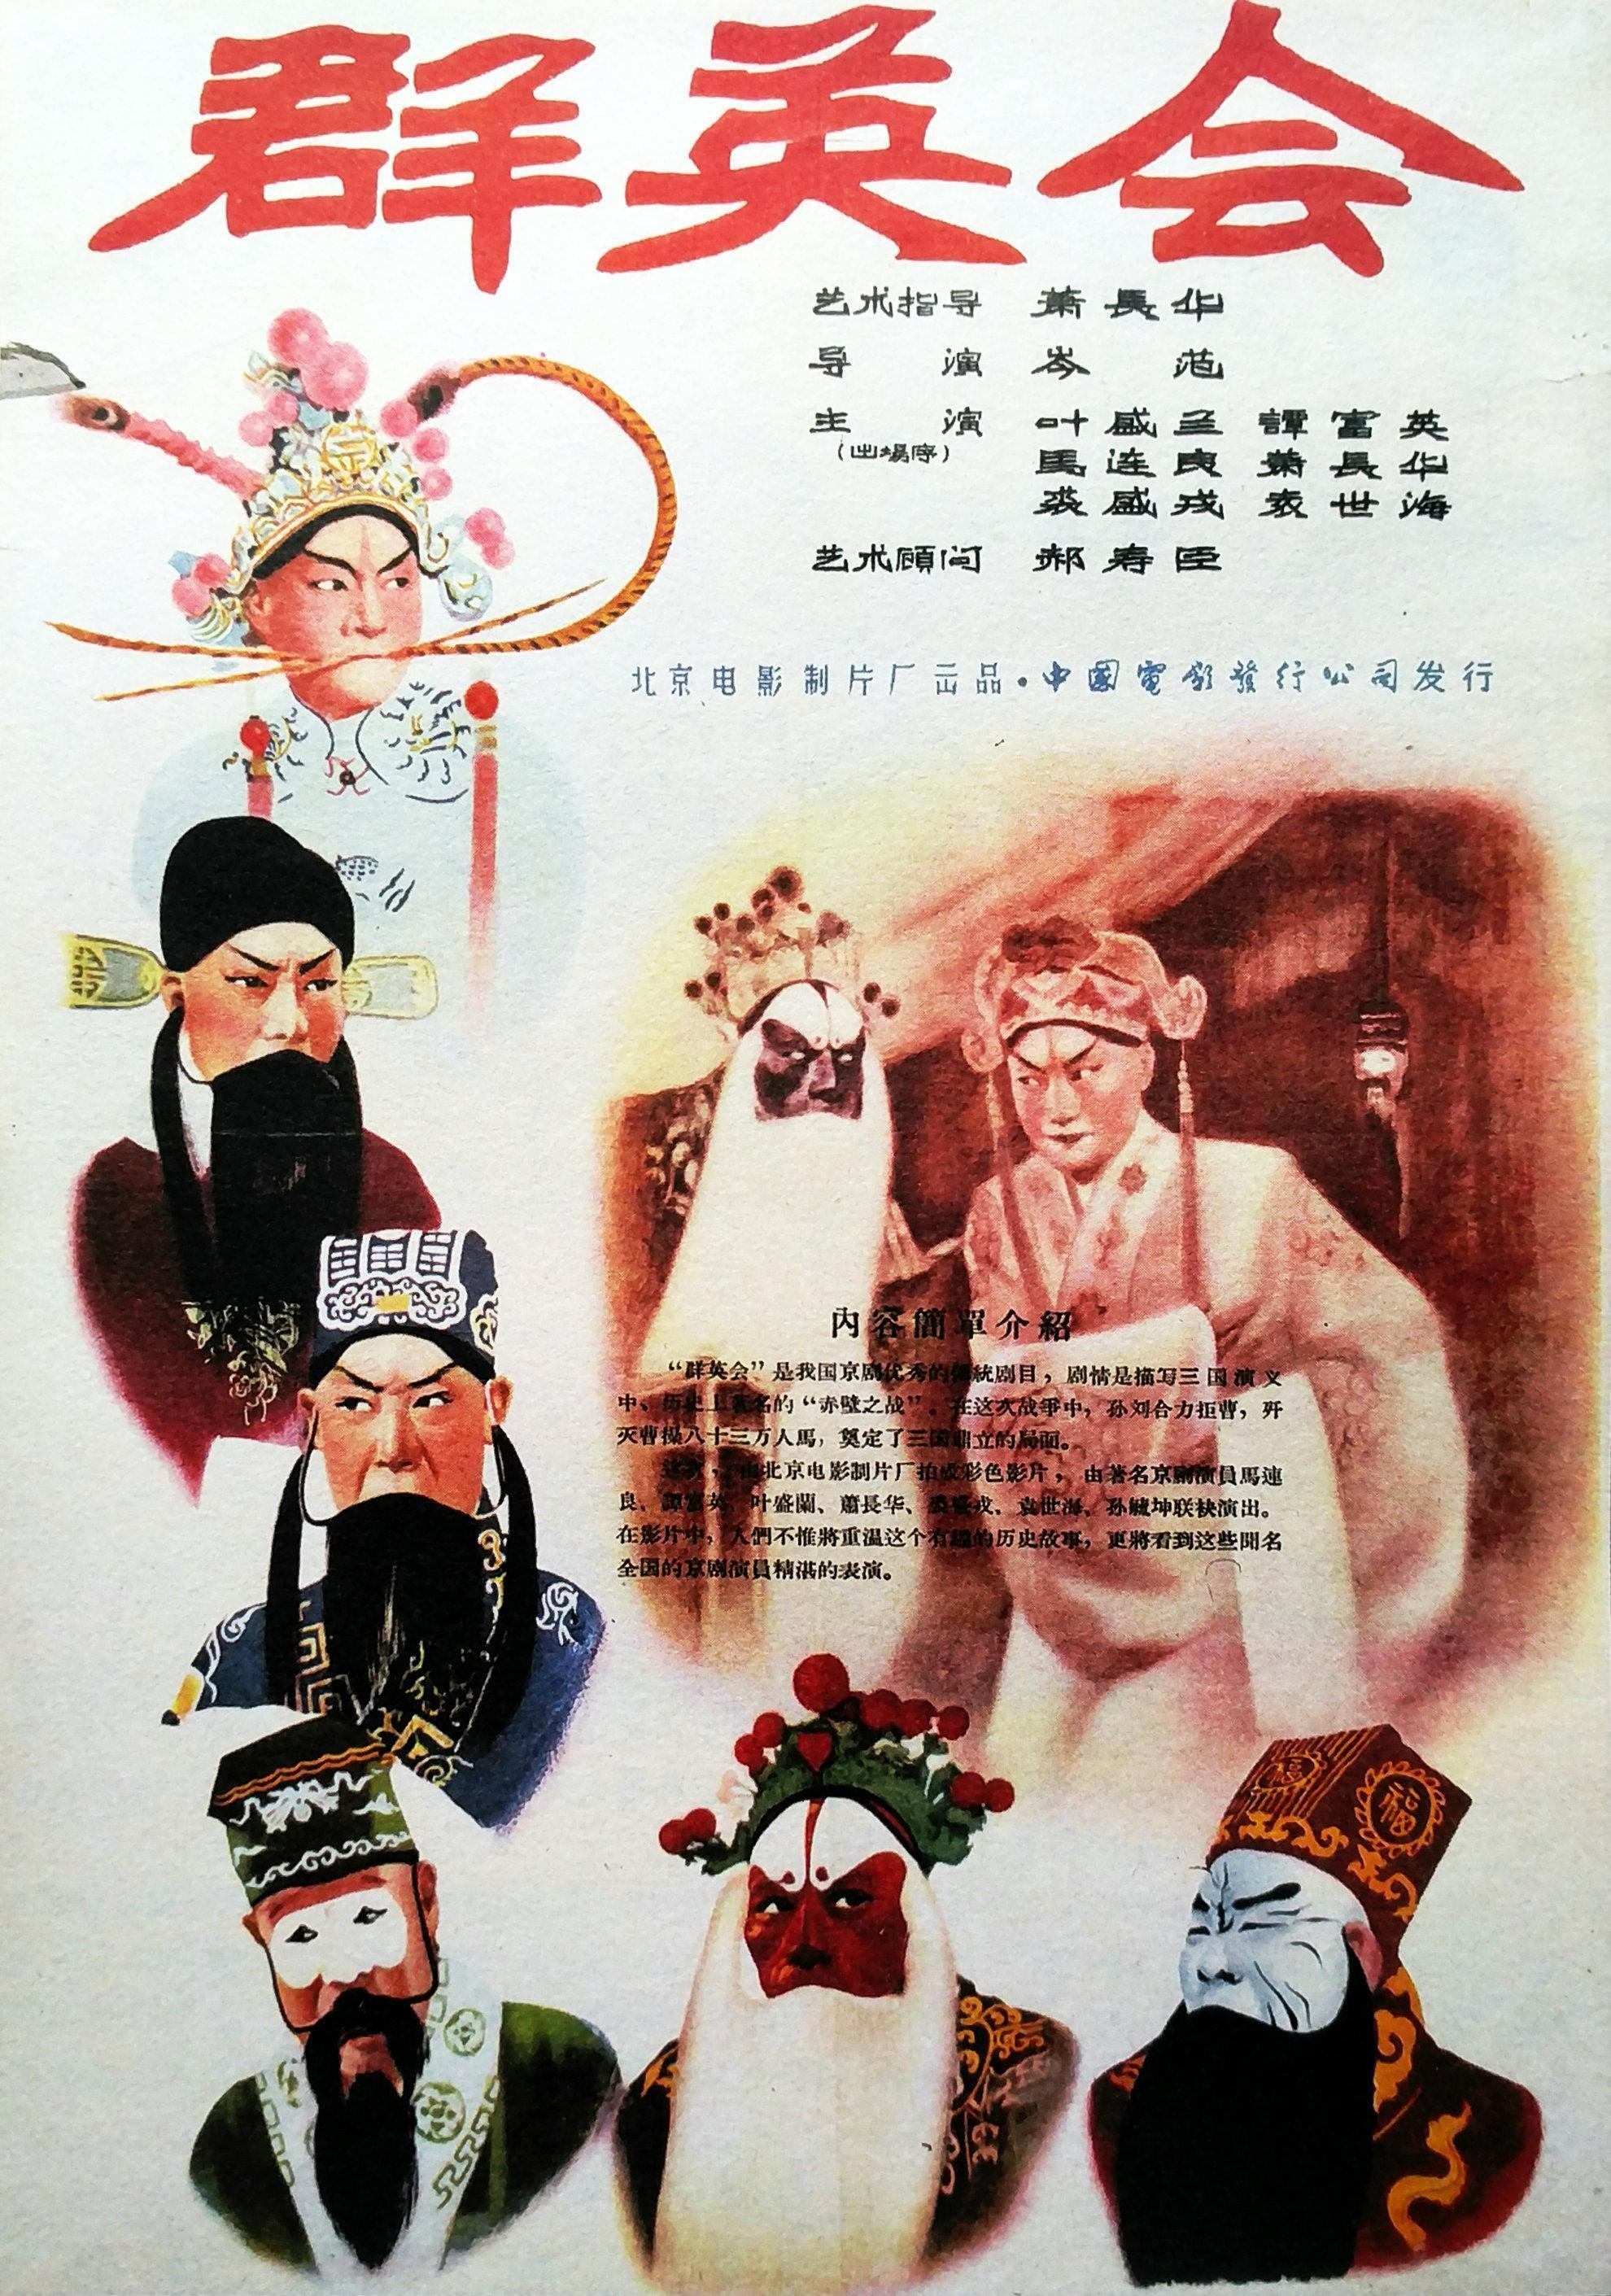 群英会
艺术指导 萧長华
导演 岑范
主演 叶盛兰 譚富英
(出場序)
馬连良 萧長华
裘盛戎 袁世海
艺术顧问 郝寿臣
北京电影制片厂出品·中國電影發行公司发行
內容簡單介紹
“群英会”是我国京剧优秀的傳統剧目，剧情是描写三国演义
中、历史上著名的“赤壁之战”。在这次战爭中，孙刘合力拒曹，歼
灭曹操八十三万人馬，奠定了三国鼎立的局面。
这次，由北京电影制片厂拍成彩色影片，由著名京剧演員馬連
良、譚富英、叶盛蘭、蕭長华、裘盛戎、袁世海、孙毓坤联袂演出。
在影片中，人們不惟將重温这个有趣的历史故事，更將看到这些聞名
全国的京剧演員精湛的表演。
福
福